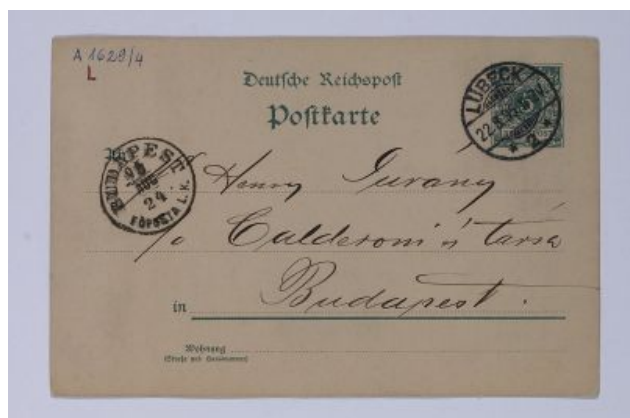 A 1629/4
L
Deutsche Reichspost
Postkarte
LÜBECK
22.8.95
* 2 *
BUDAPEST
95
AUG
24
FŐPOSTA L.K.
Henry Jurany
c/o Calderoni és társa
in Budapest.
Wohnung
(Straße und Hausnummer)